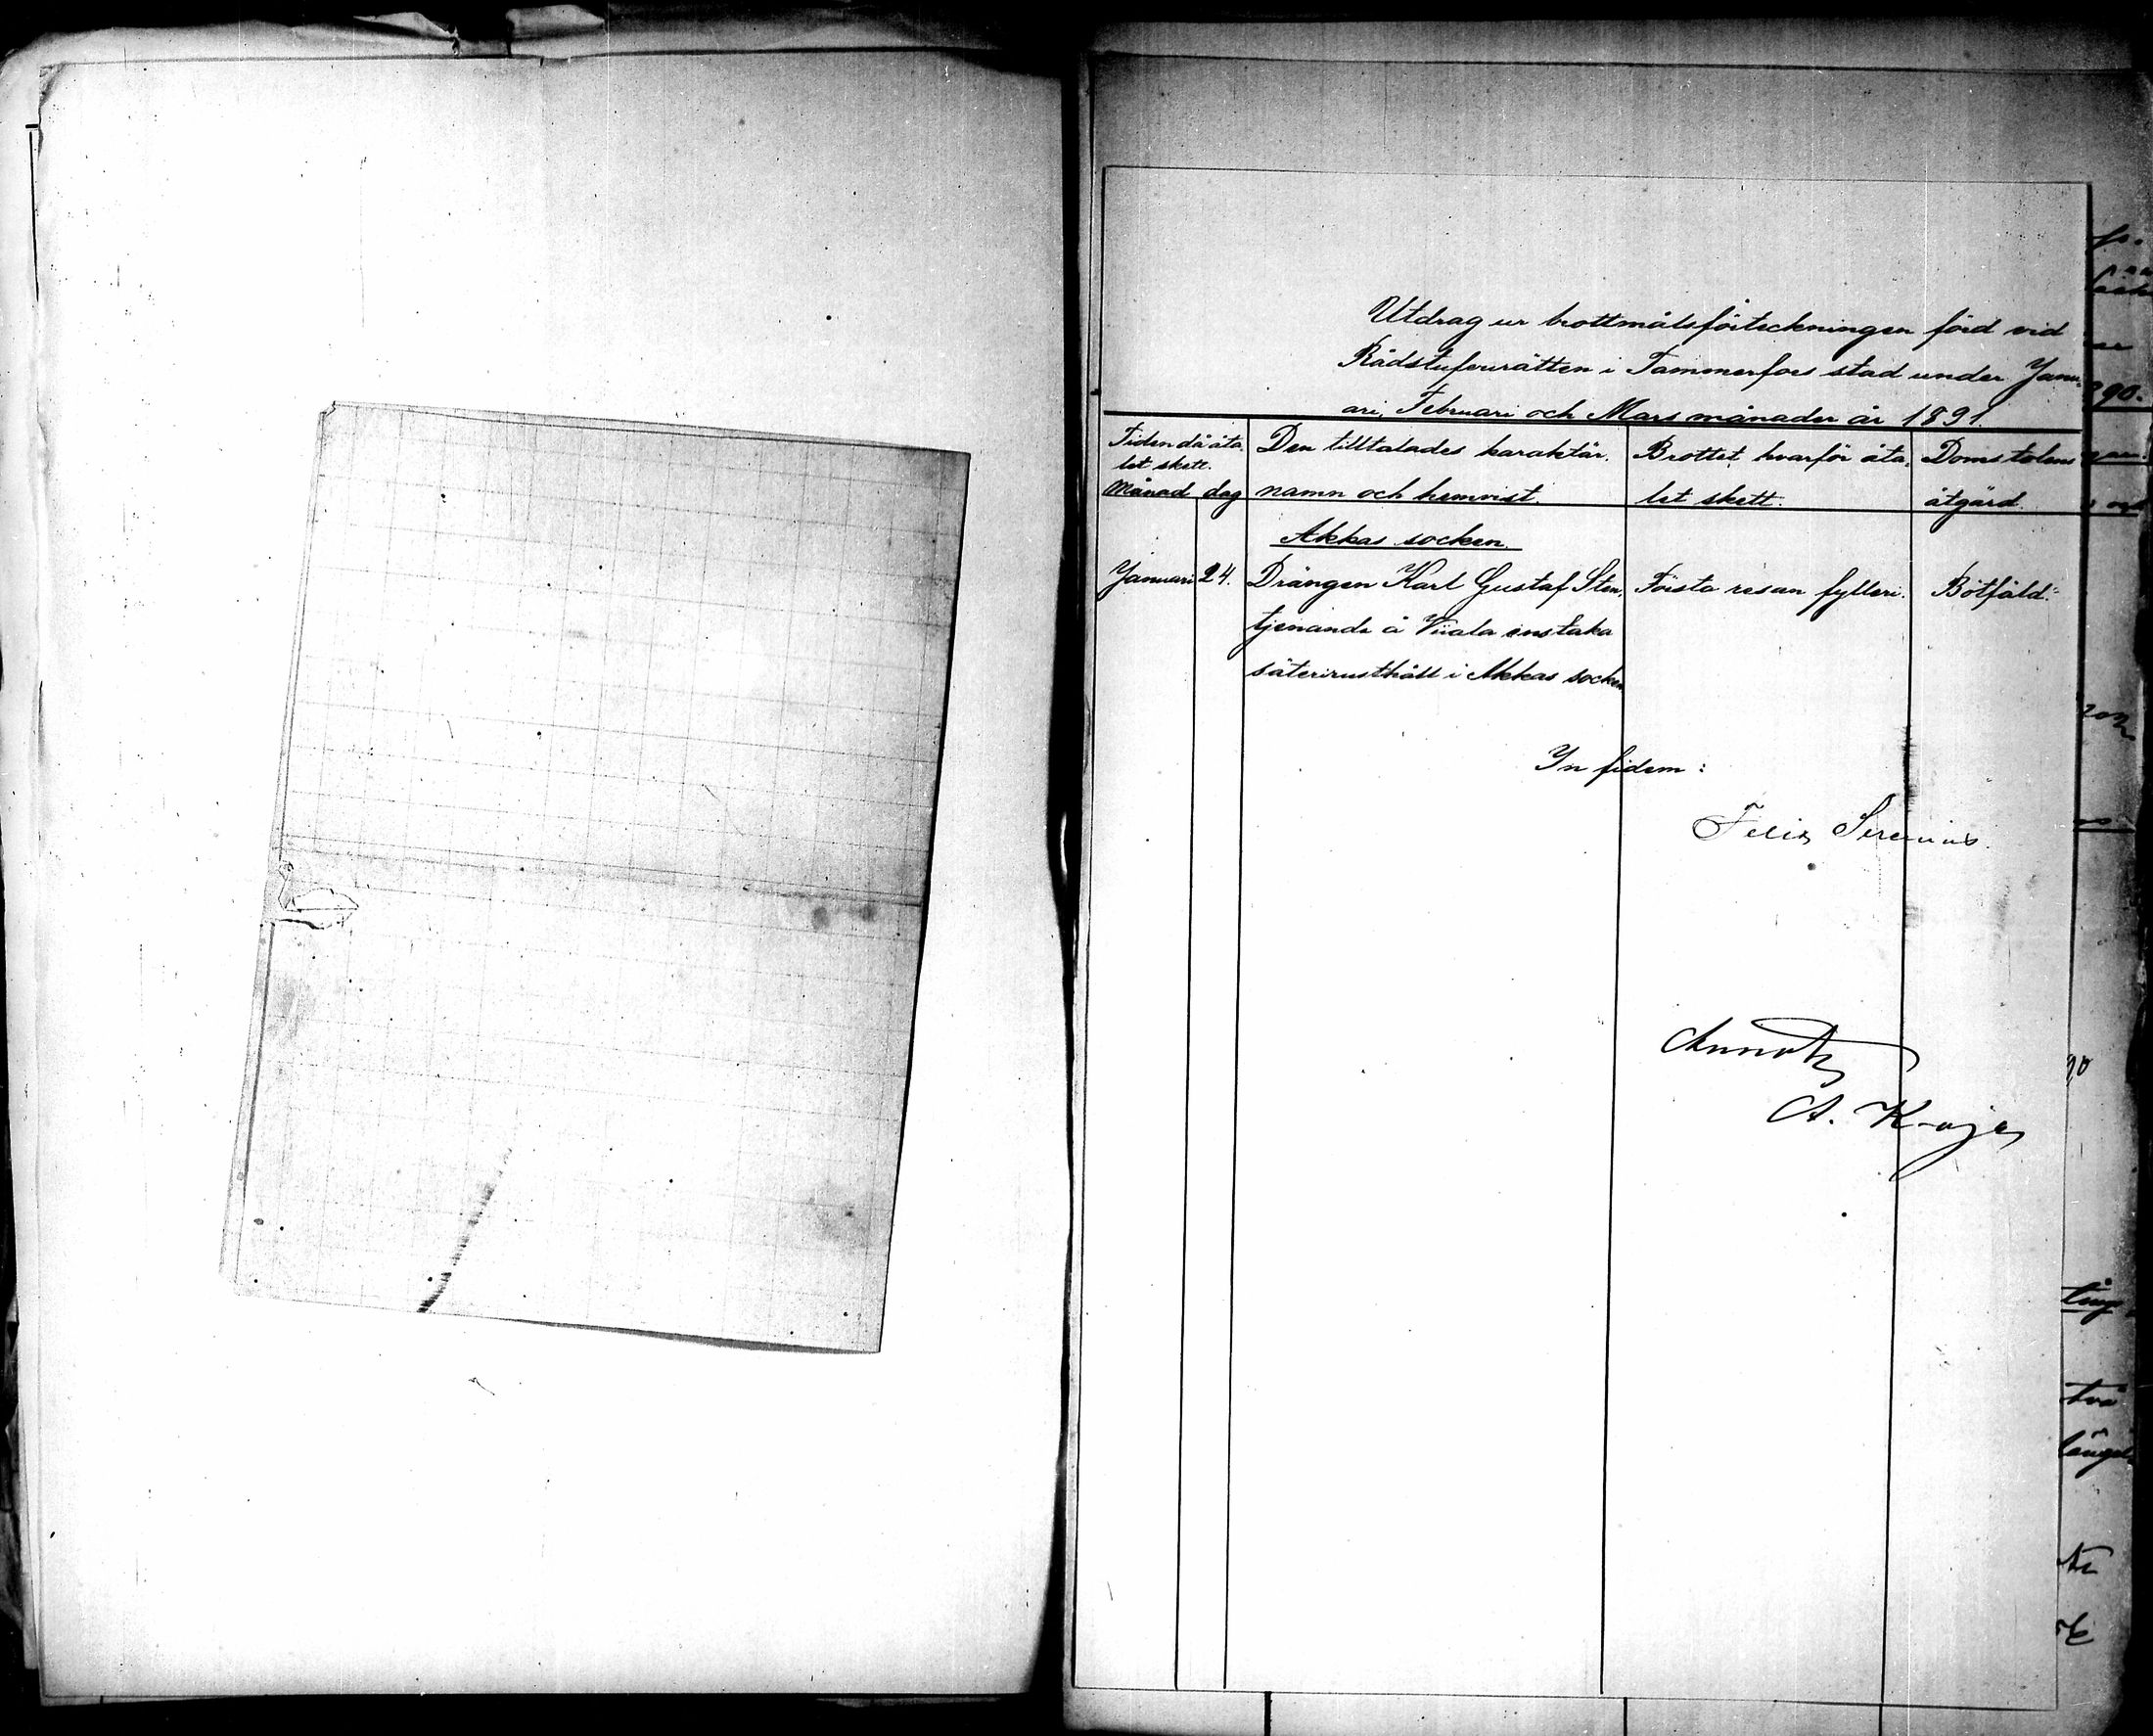 Utdrag ur brottmålsförteckningen förd vid
Rådstufvurätten i Tammerfors stad under Janu-
ari, Februari och Mars månader år 1891.
Tiden då åta-
let skett.
Månad dag
Den tilltalades karaktär,
namn och hemvist.
Brottet hvarför åta-
let skett.
Domstolens
åtgärd.
Akkas socken.
Januari 24. Drängen Karl Gustaf Sten, Första resan fylleri. Bötfäld.
tjenande å Viiala
säterirusthåll i Akkas socken
In fidem:
Felix Sirenius.
Annot.
A.